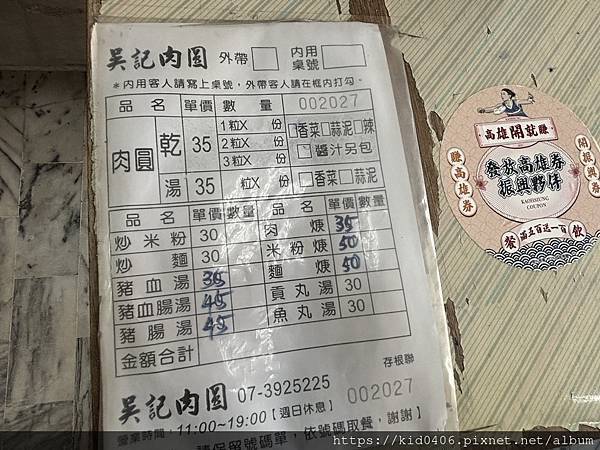 吳記肉圓 外帶□ 內用桌號
*內用客人請寫上桌號，外帶客人請在框內打勾。
品名 單價 數量 002027
肉圓 乾 35 1粒X 份 □香菜□蒜泥□辣
2粒X 份 □醬汁另包
3粒X 份
湯 35 粒X 份 □香菜□蒜泥
品名 單價 數量 品名 單價 數量
炒米粉 30 肉羹 35
炒麵 30 米粉羹 50
豬血湯 35 麵羹 50
豬血腸湯 45 貢丸湯 30
豬腸湯 45 魚丸湯 30
金額合計
存根聯
吳記肉圓 07-3925225
營業時間：11:00~19:00【週日休息】 002027
請保留號碼單，依號碼取餐，謝謝】
高雄開就賺
賺高雄券
開振興券
發放高雄券
振興夥伴
KAOHSIUNG
COUPON
餐 面五百送一百 飲
https://kid0406.pixnet.net/album